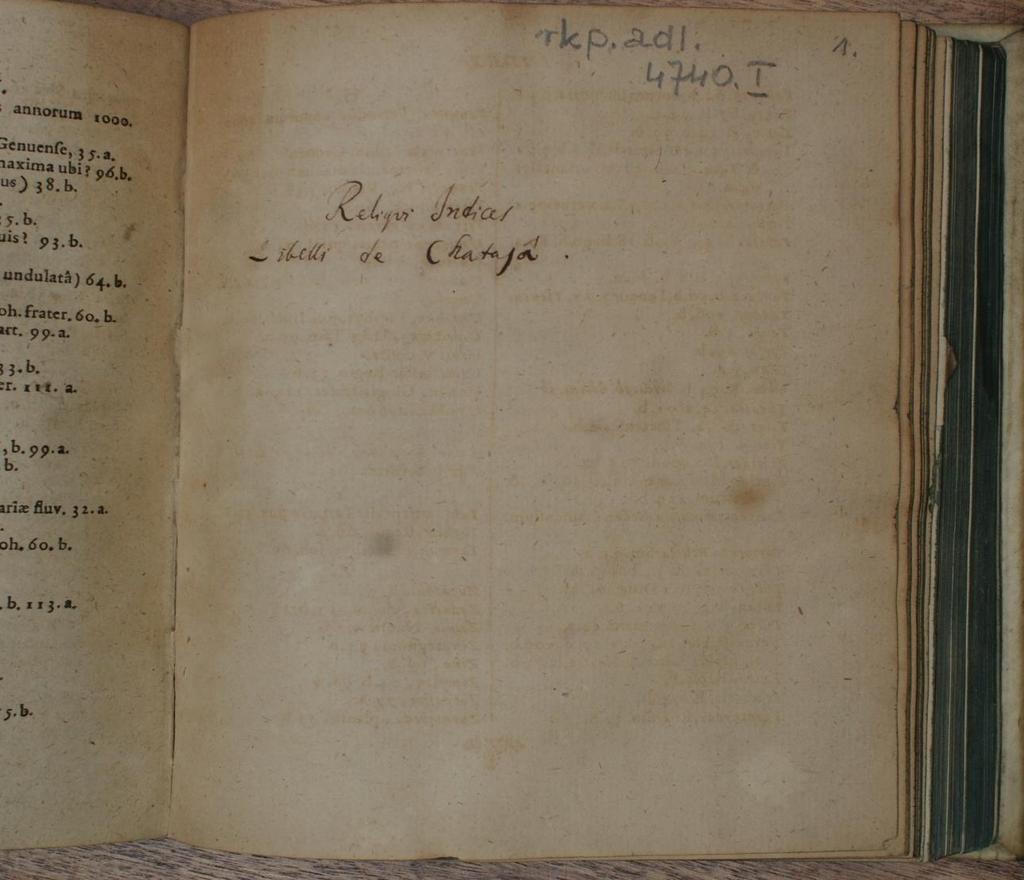 annorum 1000.
Genuenſe, 35.a.
maxima ubi? 96.b.
us) 38.b.
5.b.
uis? 93.b.
undulatâ) 64.b.
oh. frater. 60.b.
art. 99.a.
33.b.
er. 111. a.
, b. 99.a.
b.
ariæ fluv. 32.a.
oh. 60. b.
b. 113.a.
5.b.
rkp. adl. 1.
4740. I
Reliqvi Indices
Libelli de Chatajâ.